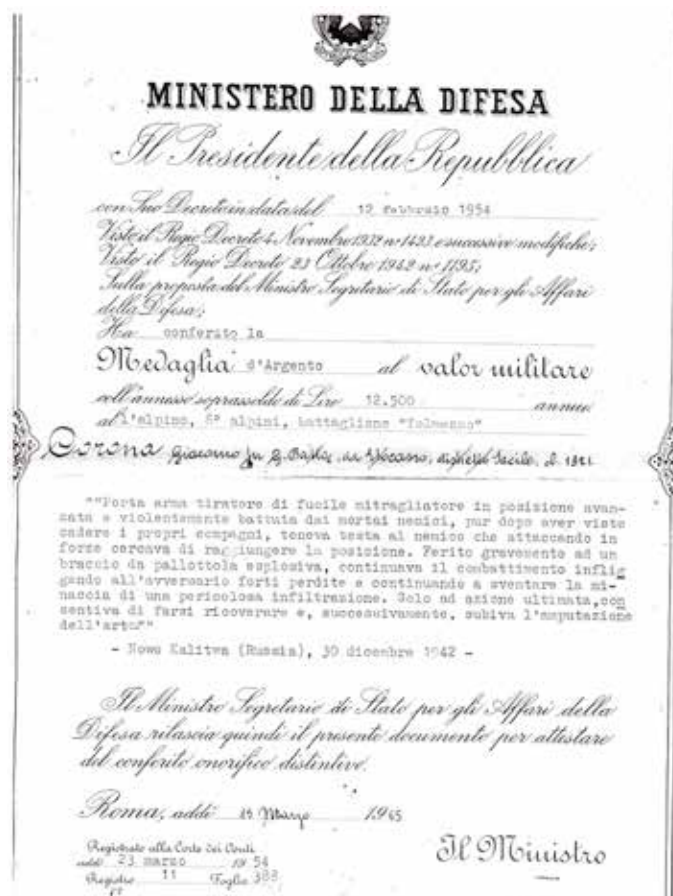 MINISTERO DELLA DIFESA
Il Presidente della Repubblica
con Suo Decreto in data del 12 febbraio 1954
Visto il Regio Decreto 4 Novembre 1932 nº 1423 e successive modifiche;
Visto il Regio Decreto 23 Ottobre 1942 nº 1195;
Sulla proposta del Ministro Segretario di Stato per gli Affari
della Difesa;
Ha conferito la
Medaglia d'Argento al valor militare
coll'annesso soprassoldo di Lire 12.500 annue
al l'alpino, 8º alpini, battaglione "Tolmezzo"
Corona Giacomo fu G. Batta, da distretto Sacile, cl. 1921
""Porta arma tiratore di fucile mitragliatore in posizione avan-
zata e violentemente battuta dai mortai nemici, pur dopo aver visto
cadere i propri compagni, teneva testa al nemico che attaccando in
forze cercava di raggiungere la posizione. Ferito gravemente ad un
braccio da pallottola esplosiva, continuava il combattimento inflig
gendo all'avversario forti perdite e continuando a sventare la mi-
naccia di una pericolosa infiltrazione. Solo ad azione ultimata, con
sentiva di farsi ricoverare e, successivamente, subiva l'amputazione
dell'arto""
- Nowo Kalitwa (Russia), 30 dicembre 1942 -
Il Ministro Segretario di Stato per gli Affari della
Difesa rilascia quindi il presente documento per attestare
del conferito onorifico distintivo.
Roma, addì Marzo 1965
Registrato alla Corte dei Conti
addì 23 marzo 1954
Registro 11 Foglio 388
Il Ministro